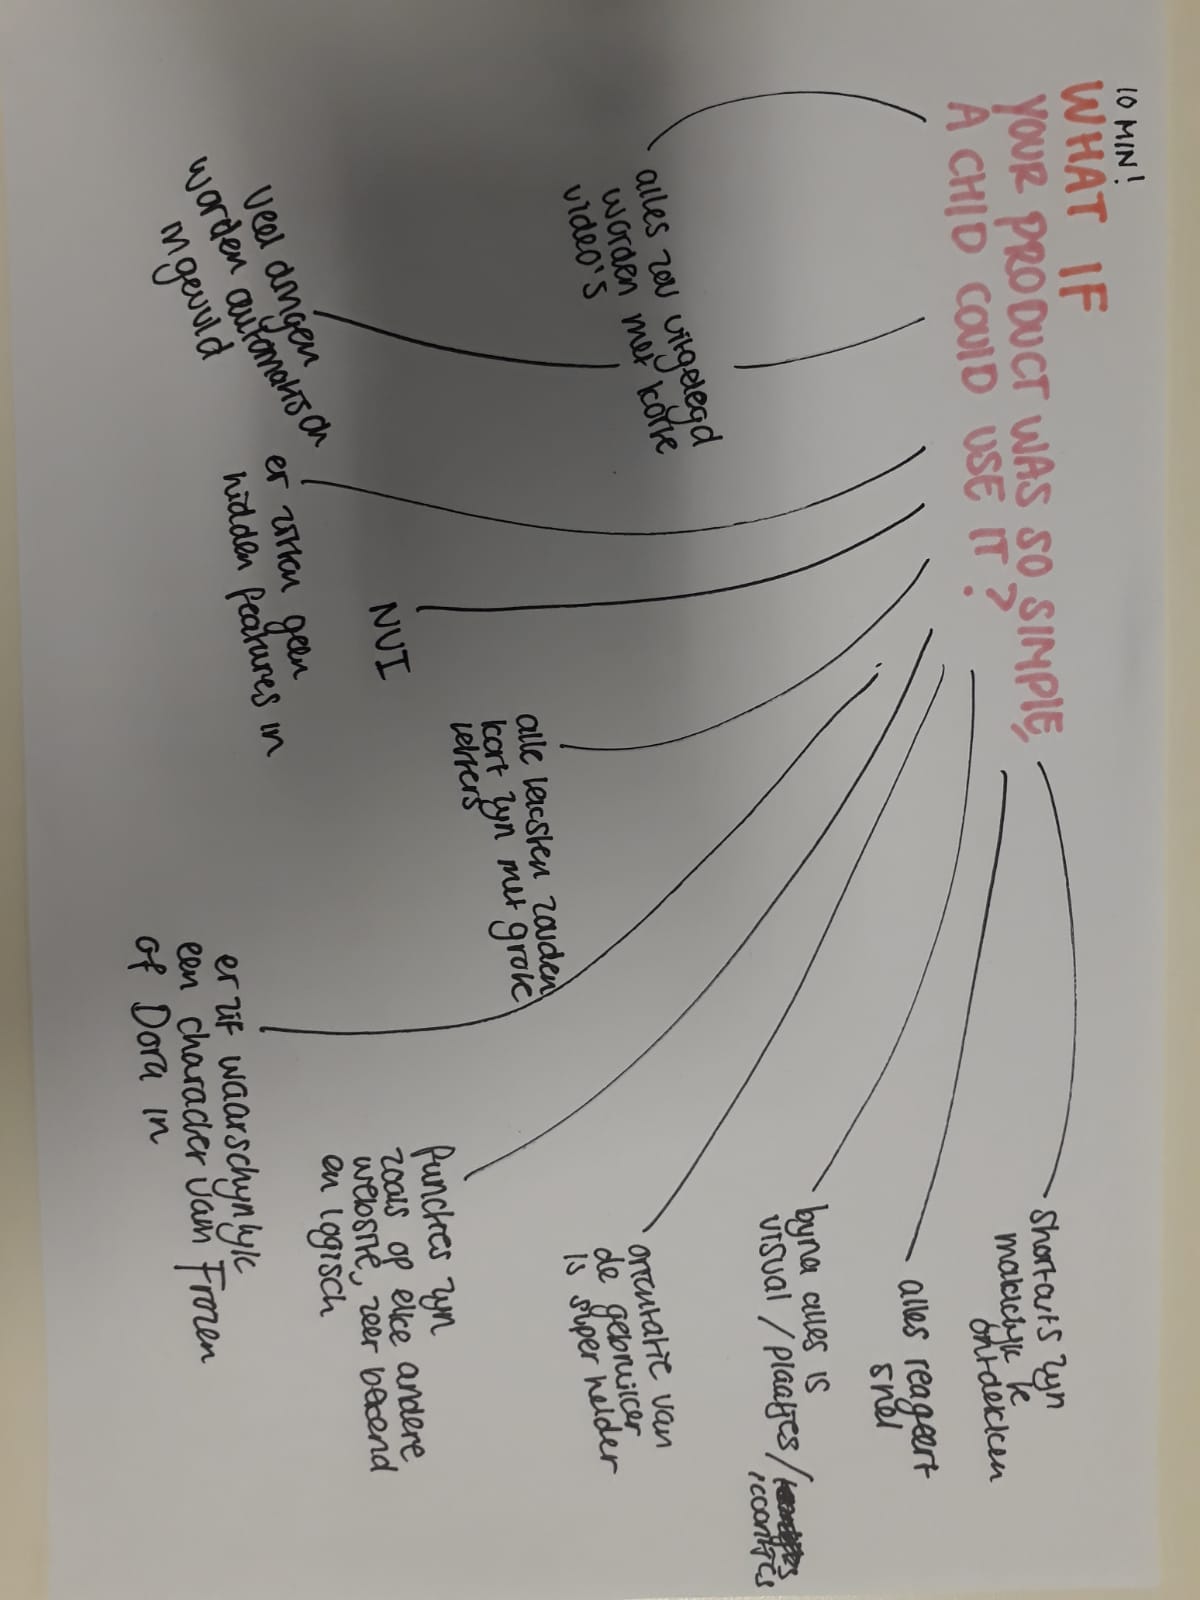 10 MIN!
WHAT IF
YOUR PRODUCT WAS SO SIMPLE,
A CHILD COULD USE IT?
shortcuts zyn
makklyk te
ontdekken
alles reageert
snel
byna alles is
visual / plaatjes /
icoontjes
orientatie van
de gebruiker
is super helder
functies zyn
zoals op elke andere
website, zeer bekend
en logisch
er zit waarschynlyk
een character van Frozen
of Dora in
alle teksten zouden
kort zyn met grote
letters
NUI
er zitten geen
hidden features in
veel dingen
worden automatisch
ingevuld
alles zou uitgelegd
worden met korte
video's